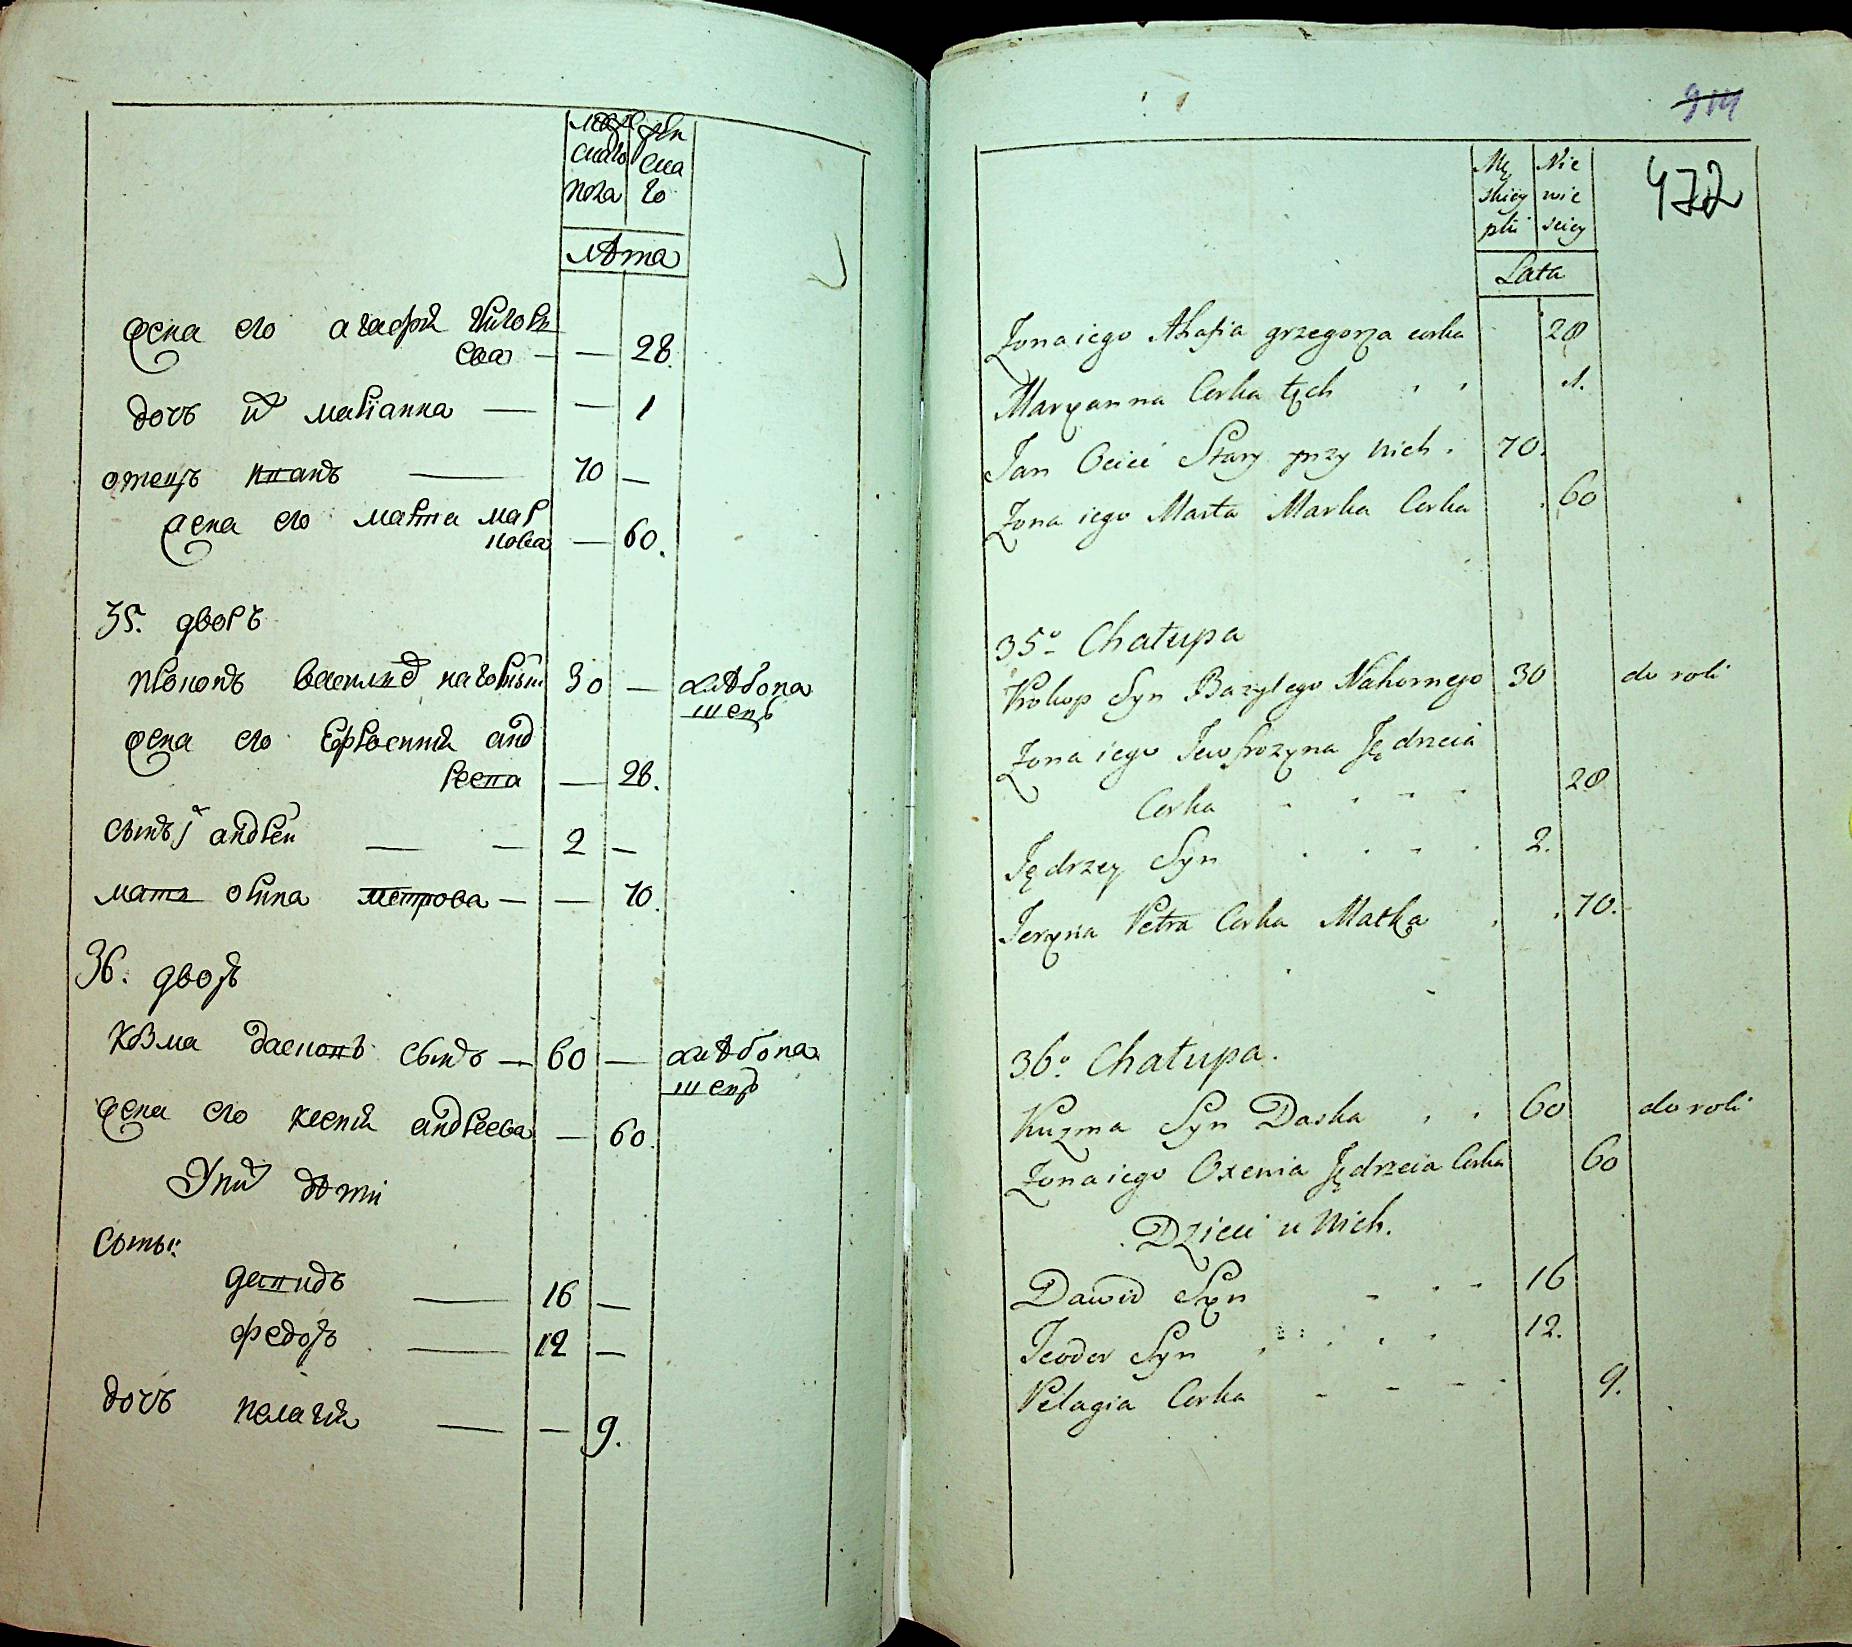 мужс
скаго
пола
жен
ска
го
лѣта
жена его агафiя григоръ
ева — — 28.
дочь их марiанна — — 1
отецъ иванъ — 70 —
жена его марта мар
кова — 60.
35. дворъ
прокопъ василiев нагорный 30 — хлѣбопа
шецъ
жена его Ефросинiя анд
реева — 28.
сынъ андрей — — 2 —
мать орина петрова — — 70.
36. дворъ
кузма даскопъ сынъ — 60 — хлѣбопа
шецъ
жена его ксенiя андреева — 60.
У них дѣти
сыны:
демидъ — 16 —
федоръ — 12 —
дочь пелагiя — — 9.
914
472
Mę
skiey
płci
Nie
wie
sciey
Lata
Zona iego Ahafia grzegorza corka 28
Maryanna Corka tych 1.
Jan Ociec Stary przy nich. 70.
Zona iego Marta Marka Corka 60
35o Chałupa
Prokop Syn Bazylego Nahornego 30 do roli
Zona iego Jewfrozyna Jędrzeia
Corka 28
Jędrzey Syn 2.
Jeryna Petra Corka Matka 70.
36o Chałupa.
Kuzma Syn Daska 60 do roli
Zona iego Oxenia Jędrzeia Corka 60
Dzieci u Nich.
Dawid Syn 16
Teodor Syn 12.
Pelagia Corka 9.